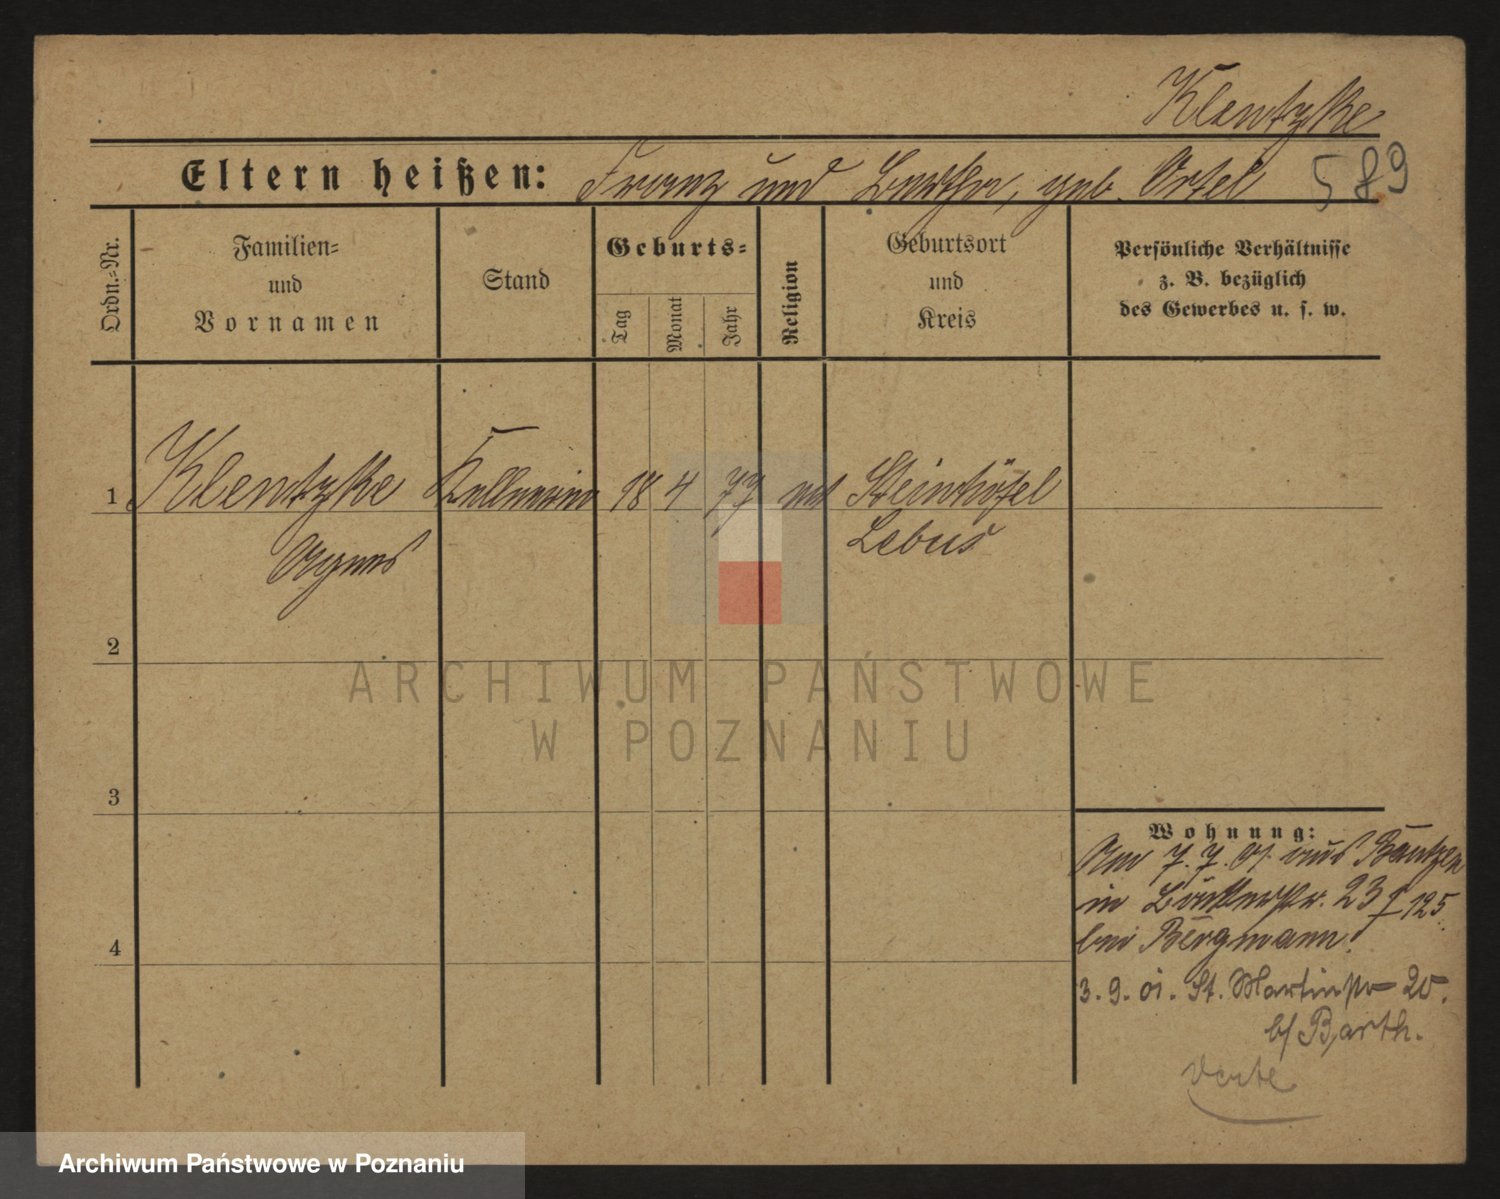 Klentzke
Eltern heißen: Franz und Bertha, geb. Ortel 589
Ordn.=Nr.
Familien=
und
Vornamen
Stand
Geburts=
Tag
Monat
Jahr
Religion
Geburtsort
und
Kreis
Persönliche Verhältnisse
z. B. bezüglich
des Gewerbes u. s. w.
1 Klentzke Kellnerin 18 4 77 Steinhöfel
Agnes Lebus
2
3
4
Wohnung:
Am 7. 7. 01. aus Bautzen
in 23 125
bei Bergmann.
3. 9. 01. St. Martinstr 20.
b/ Barth.
verte
ARCHIWUM PAŃSTWOWE
W POZNANIU
Archiwum Państwowe w Poznaniu